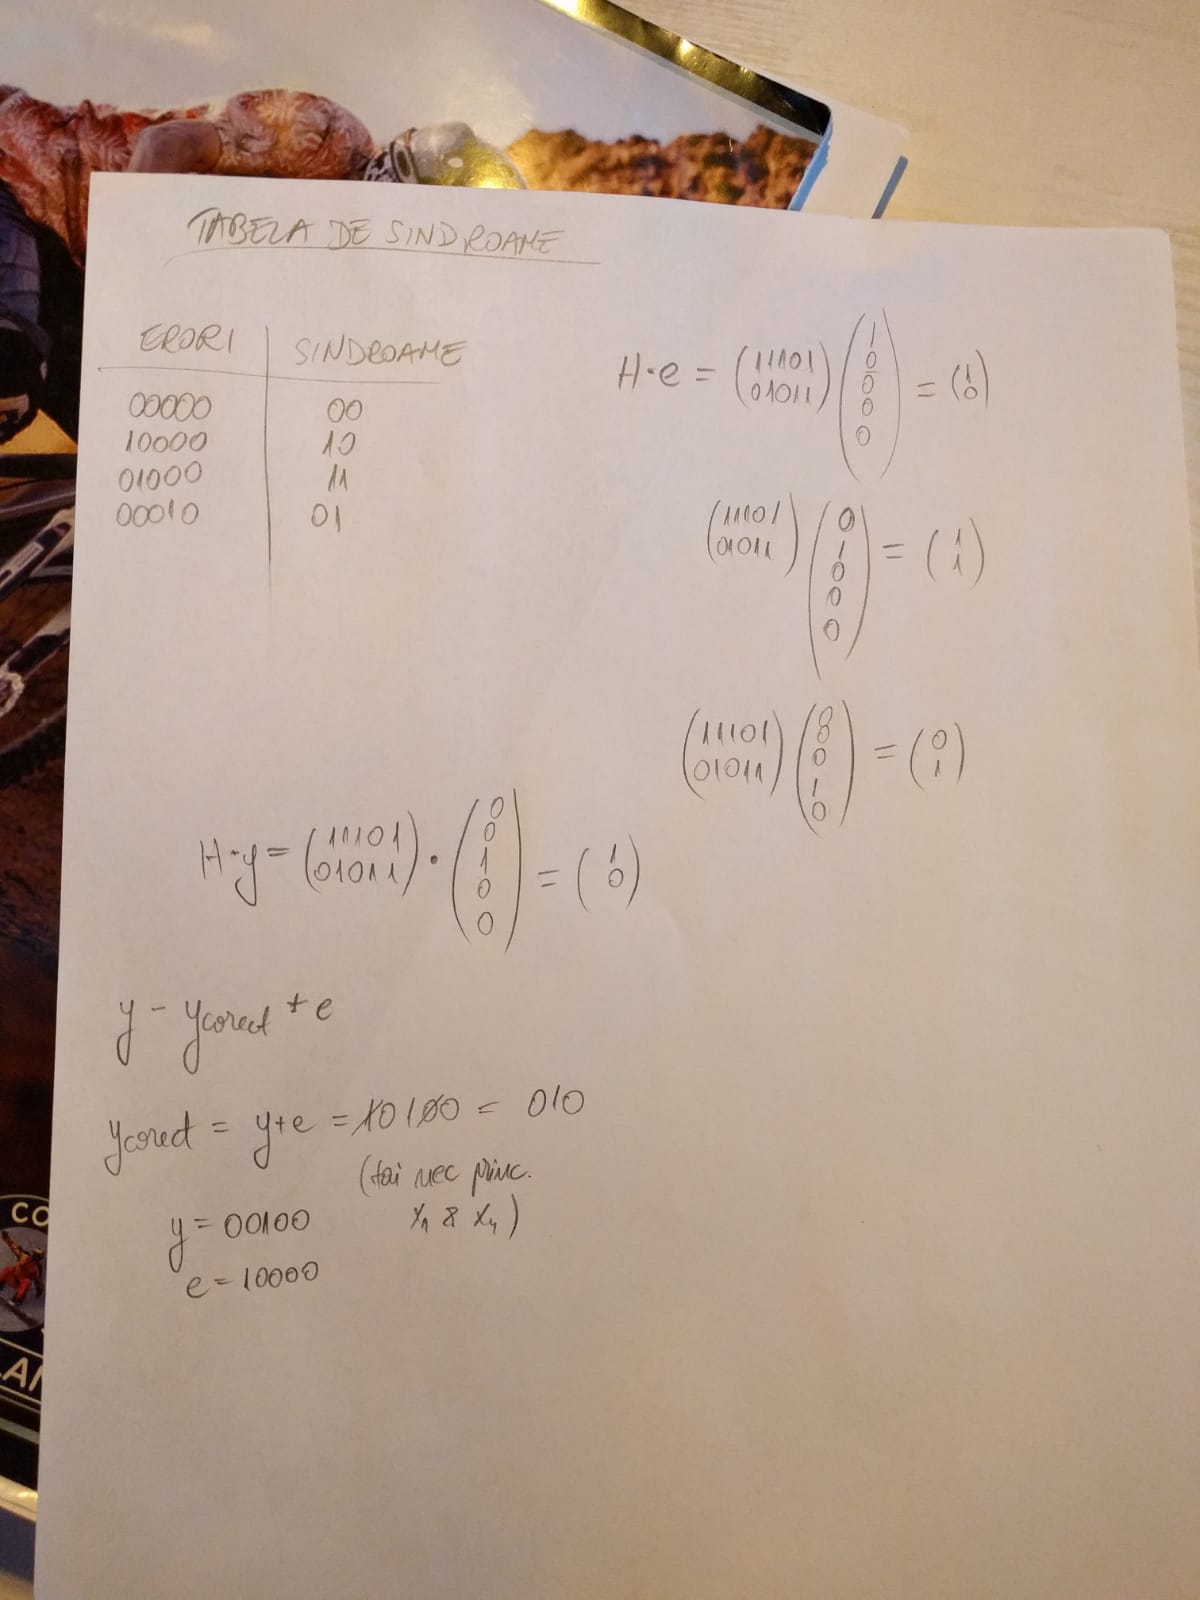 TABELA DE SINDROAME
ERORI | SINDROAME
00000 00
10000 10
01000 11
00010 01
H·e = (11101 / 01011) (1 0 0 0 0) = (1 0)
(11101 / 01011) (0 1 0 0 0) = (1 1)
(11101 / 01011) (0 0 0 1 0) = (0 1)
H·y = (11101 / 01011) · (0 0 1 0 0) = (1 0)
y - ycorect + e
ycorect = y+e = 10100 = 010
(tai nec princ.
x1 & x4)
y = 00100
e = 10000
CO
LAN